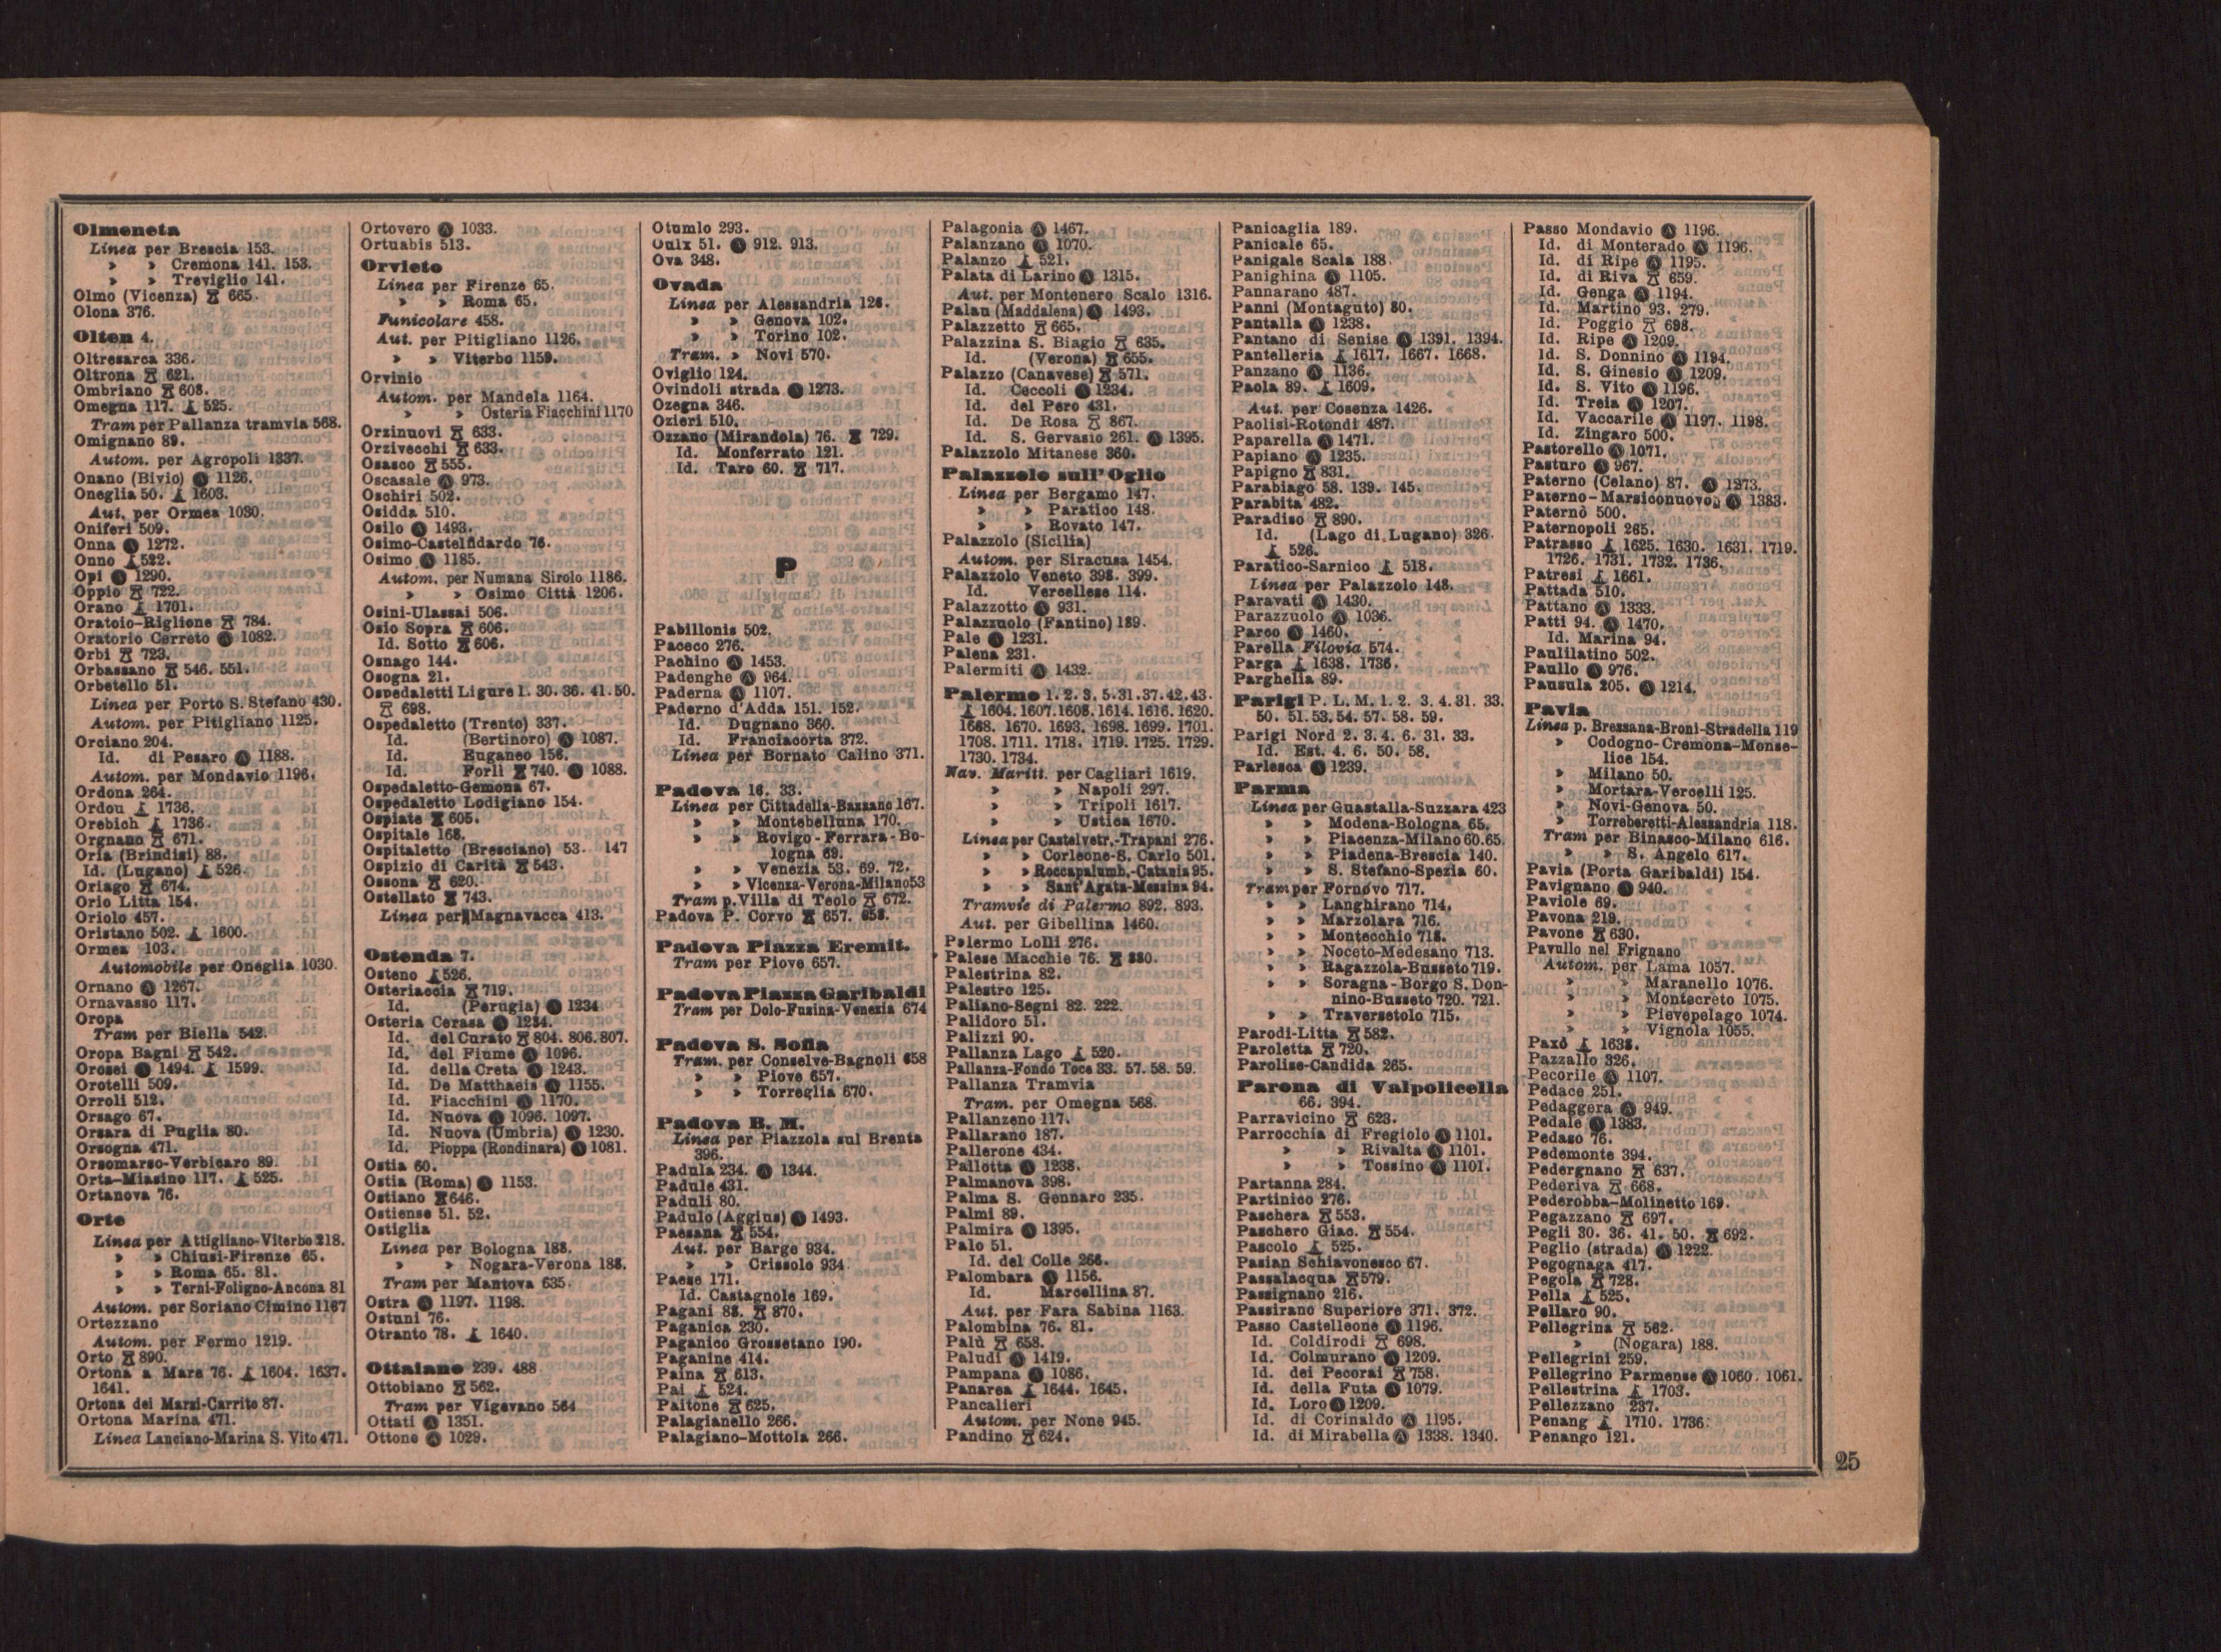 Olmeneta
Linea per Brescia 153.
» » Cremona 141. 153.
» » Treviglio 141.
Olmo (Vicenza) 665.
Olona 376.
Olten 4.
Oltresarca 336.
Oltrona 621.
Ombriano 608.
Omegna 117. 525.
Tram per Pallanza tramvia 568.
Omignano 89.
Autom. per Agropoli 1337.
Onano (Bivio) A 1126.
Oneglia 50. 1603.
Aut. per Ormea 1030.
Oniferi 509.
Onna A 1272.
Onno 522.
Opi A 1290.
Oppio 722.
Orano 1701.
Oratoio-Riglione 784.
Oratorio Cerreto A 1082.
Orbi 723.
Orbassano 546. 551.
Orbetello 51.
Linea per Porto S. Stefano 430.
Autom. per Pitigliano 1125.
Orciano 204.
Id. di Pesaro A 1188.
Autom. per Mondavio 1196.
Ordona 264.
Ordou 1736.
Orebich 1736.
Orgnano 671.
Oria (Brindisi) 88.
Id. (Lugano) 526.
Oriago 674.
Orio Litta 154.
Oriolo 457.
Oristano 502. 1600.
Ormea 103.
Automobile per Oneglia 1030.
Ornano A 1267.
Ornavasso 117.
Oropa
Tram per Biella 542.
Oropa Bagni 542.
Orosei A 1494. 1599.
Orotelli 509.
Orroli 512.
Orsago 67.
Orsara di Puglia 80.
Orsogna 471.
Orsomarso-Verbicaro 89.
Orta-Miasino 117. 525.
Ortanova 76.
Orte
Linea per Attigliano-Viterbo 218.
» » Chiusi-Firenze 65.
» » Roma 65. 81.
» » Terni-Foligno-Ancona 81
Autom. per Soriano Cimino 1167
Ortezzano
Autom. per Fermo 1219.
Orto 890.
Ortona a Mare 76. 1604. 1637.
1641.
Ortona dei Marsi-Carrito 87.
Ortona Marina 471.
Linea Lanciano-Marina S. Vito 471.
Ortovero A 1033.
Ortuabis 513.
Orvieto
Linea per Firenze 65.
» » Roma 65.
Funicolare 458.
Aut. per Pitigliano 1126.
» » Viterbo 1159.
Orvinio
Autom. per Mandela 1164.
» » Osteria Fiacchini 1170
Orzinuovi 633.
Orzivecchi 633.
Osasco 555.
Oscasale A 973.
Oschiri 502.
Osidda 510.
Osilo A 1493.
Osimo-Castelfidardo 76.
Osimo A 1185.
Autom. per Numana Sirolo 1186.
» » Osimo Città 1206.
Osini-Ulassai 506.
Osio Sopra 606.
Id. Sotto 606.
Osnago 144.
Osogna 21.
Ospedaletti Ligure 1. 30. 36. 41. 50.
698.
Ospedaletto (Trento) 337.
Id. (Bertinoro) A 1087.
Id. Euganeo 156.
Id. Forlì 740. A 1088.
Ospedaletto-Gemona 67.
Ospedaletto Lodigiano 154.
Ospiate 605.
Ospitale 168.
Ospitaletto (Bresciano) 53. 147
Ospizio di Carità 543.
Ossona 620.
Ostellato 743.
Linea per Magnavacca 413.
Ostenda 7.
Osteno 526.
Osteriaccia 719.
Id. (Perugia) A 1234
Osteria Cerasa A 1234.
Id. del Curato 804. 806. 807.
Id. del Fiume A 1096.
Id. della Creta A 1243.
Id. De Matthaeis A 1155.
Id. Fiacchini A 1170.
Id. Nuova A 1096. 1097.
Id. Nuova (Umbria) A 1230.
Id. Pioppa (Rondinara) A 1081.
Ostia 60.
Ostia (Roma) A 1153.
Ostiano 646.
Ostiense 51. 52.
Ostiglia
Linea per Bologna 188.
» » Nogara-Verona 188.
Tram per Mantova 635.
Ostra A 1197. 1198.
Ostuni 76.
Otranto 78. 1640.
Ottaiano 239. 488
Ottobiano 562.
Tram per Vigevano 564
Ottati A 1351.
Ottone A 1029.
Otumlo 293.
Oulx 51. A 912. 913.
Ova 348.
Ovada
Linea per Alessandria 128.
» » Genova 102.
» » Torino 102.
Tram. » Novi 570.
Oviglio 124.
Ovindoli strada A 1273.
Ozegna 346.
Ozieri 510.
Ozzano (Mirandola) 76. 729.
Id. Monferrato 121.
Id. Taro 60. 717.
P
Pabillonis 502.
Paceco 276.
Pachino A 1453.
Padenghe A 964.
Paderna A 1107.
Paderno d'Adda 151. 152.
Id. Dugnano 360.
Id. Franciacorta 372.
Linea per Bornato Calino 371.
Padova 16. 33.
Linea per Cittadella-Bassano 167.
» » Montebelluna 170.
» » Rovigo-Ferrara-Bo-
logna 69.
» » Venezia 53. 69. 72.
» » Vicenza-Verona-Milano 53
Tram p. Villa di Teolo 672.
Padova P. Corvo 657. 658.
Padova Piazza Eremit.
Tram per Piove 657.
Padova Piazza Garibaldi
Tram per Dolo-Fusina-Venezia 674
Padova S. Sofia
Tram. per Conselve-Bagnoli 658
» » Piove 657.
» » Torreglia 670.
Padova B. M.
Linea per Piazzola sul Brenta
396.
Padula 234. A 1344.
Padule 431.
Paduli 80.
Padulo (Aggius) A 1493.
Paesana 554.
Aut. per Barge 934.
» » Crissolo 934
Paese 171.
Id. Castagnole 169.
Pagani 88. 870.
Paganica 230.
Paganico Grossetano 190.
Paganine 414.
Paina 613.
Pai 524.
Paitone 625.
Palagianello 266.
Palagiano-Mottola 266.
Palagonia A 1467.
Palanzano A 1070.
Palanzo 521.
Palata di Larino A 1315.
Aut. per Montenero Scalo 1316.
Palau (Maddalena) A 1493.
Palazzetto 665.
Palazzina S. Biagio 635.
Id. (Verona) 655.
Palazzo (Canavese) 571.
Id. Ceccoli A 1234.
Id. del Pero 431.
Id. De Rosa 867.
Id. S. Gervasio 261. A 1395.
Palazzolo Milanese 360.
Palazzolo sull'Oglio
Linea per Bergamo 147.
» » Paratico 148.
» » Rovato 147.
Palazzolo (Sicilia)
Autom. per Siracusa 1454.
Palazzolo Veneto 398. 399.
Id. Vercellese 114.
Palazzotto A 931.
Palazzuolo (Fantino) 189.
Pale A 1231.
Palena 231.
Palermiti A 1432.
Palermo 1. 2. 3. 5. 31. 37. 42. 43.
1604. 1607. 1608. 1614. 1616. 1620.
1668. 1670. 1693. 1698. 1699. 1701.
1708. 1711. 1718. 1719. 1725. 1729.
1730. 1734.
Nav. Maritt. per Cagliari 1619.
» » Napoli 297.
» » Tripoli 1617.
» » Ustica 1670.
Linea per Castelvetr.-Trapani 276.
» » Corleone-S. Carlo 501.
» » Roccapalumb.-Catania 95.
» » Sant'Agata-Messina 94.
Tramvie di Palermo 892. 893.
Aut. per Gibellina 1460.
Palermo Lolli 276.
Palese Macchie 76. 880.
Palestrina 82.
Palestro 125.
Paliano-Segni 82. 222.
Palidoro 51.
Palizzi 90.
Pallanza Lago 520.
Pallanza-Fondo Toce 33. 57. 58. 59.
Pallanza Tramvia
Tram. per Omegna 568.
Pallanzeno 117.
Pallarano 187.
Pallerone 434.
Pallotta A 1238.
Palmanova 398.
Palma S. Gennaro 235.
Palmi 89.
Palmira A 1395.
Palo 51.
Id. del Colle 266.
Palombara A 1156.
Id. Marcellina 87.
Aut. per Fara Sabina 1163.
Palombina 76. 81.
Palù 658.
Paludi A 1419.
Pampana A 1086.
Panarea 1644. 1645.
Pancalieri
Autom. per None 945.
Pandino 624.
Panicaglia 189.
Panicale 65.
Panigale Scala 188.
Panighina A 1105.
Pannarano 487.
Panni (Montaguto) 80.
Pantalla A 1238.
Pantano di Senise A 1391. 1394.
Pantelleria 1617. 1667. 1668.
Panzano A 1136.
Paola 89. 1609.
Aut. per Cosenza 1426.
Paolisi-Rotondi 487.
Paparella A 1471.
Papiano A 1235.
Papigno 831.
Parabiago 58. 139. 145.
Parabita 482.
Paradiso 890.
Id. (Lago di Lugano) 326.
526.
Paratico-Sarnico 518.
Linea per Palazzolo 148.
Paravati A 1430.
Parazzuolo A 1036.
Parco A 1460.
Parella Filovia 574.
Parga 1638. 1736.
Parghelia 89.
Parigi P. L. M. 1. 2. 3. 4. 31. 33.
50. 51. 53. 54. 57. 58. 59.
Parigi Nord 2. 3. 4. 6. 31. 33.
Id. Est. 4. 6. 50. 58.
Parlesca A 1239.
Parma
Linea per Guastalla-Suzzara 423
» » Modena-Bologna 65.
» » Piacenza-Milano 60. 65.
» » Piadena-Brescia 140.
» » S. Stefano-Spezia 60.
Tram per Fornovo 717.
» » Langhirano 714.
» » Marzolara 716.
» » Montecchio 718.
» » Noceto-Medesano 713.
» » Ragazzola-Busseto 719.
» » Soragna-Borgo S. Don-
nino-Busseto 720. 721.
» » Traversetolo 715.
Parodi-Litta 582.
Paroletta 720.
Parolise-Candida 265.
Parona di Valpolicella
66. 394.
Parravicino 623.
Parrocchia di Fregiolo A 1101.
» » Rivalta A 1101.
» » Tossino A 1101.
Partanna 284.
Partinico 276.
Paschera 553.
Paschero Giac. 554.
Pascolo 525.
Pasian Schiavonesco 67.
Passalacqua 579.
Passignano 216.
Passirano Superiore 371. 372.
Passo Castelleone A 1196.
Id. Coldirodi 698.
Id. Colmurano A 1209.
Id. dei Pecorai 758.
Id. della Futa A 1079.
Id. Loro A 1209.
Id. di Corinaldo A 1195.
Id. di Mirabella A 1338. 1340.
Passo Mondavio A 1196.
Id. di Monterado A 1196.
Id. di Ripe A 1195.
Id. di Riva 659.
Id. Genga A 1194.
Id. Martino 93. 279.
Id. Poggio 698.
Id. Ripe A 1209.
Id. S. Donnino A 1194.
Id. S. Ginesio A 1209.
Id. S. Vito A 1196.
Id. Treia A 1207.
Id. Vaccarile A 1197. 1198.
Id. Zingaro 500.
Pastorello A 1071.
Pasturo A 967.
Paterno (Celano) 87. A 1273.
Paterno-Marsiconuovo A 1383.
Paternò 500.
Paternopoli 265.
Patrasso 1625. 1630. 1631. 1719.
1726. 1731. 1732. 1736.
Patresi 1661.
Pattada 510.
Pattano A 1333.
Patti 94. A 1470.
Id. Marina 94.
Paulilatino 502.
Paullo A 976.
Pausula 205. A 1214.
Pavia
Linea p. Bressana-Broni-Stradella 119
» Codogno-Cremona-Monse-
lice 154.
» Milano 50.
» Mortara-Vercelli 125.
» Novi-Genova 50.
» Torreberetti-Alessandria 118.
Tram per Binasco-Milano 616.
» » S. Angelo 617.
Pavia (Porta Garibaldi) 154.
Pavignano A 940.
Paviole 69.
Pavona 219.
Pavone 630.
Pavullo nel Frignano
Autom. per Lama 1057.
» » Maranello 1076.
» » Montecreto 1075.
» » Pievepelago 1074.
» » Vignola 1055.
Paxò 1638.
Pazzallo 326.
Pecorile A 1107.
Pedace 251.
Pedaggera A 949.
Pedale A 1383.
Pedaso 76.
Pedemonte 394.
Pedergnano 637.
Pederiva 668.
Pederobba-Molinetto 169.
Pegazzano 697.
Pegli 30. 36. 41. 50. 692.
Peglio (strada) A 1222.
Pegognaga 417.
Pegola 728.
Pella 525.
Pellaro 90.
Pellegrina 562.
» (Nogara) 188.
Pellegrini 259.
Pellegrino Parmense A 1060. 1061.
Pellestrina 1703.
Pellezzano 237.
Penang 1710. 1736.
Penango 121.
25